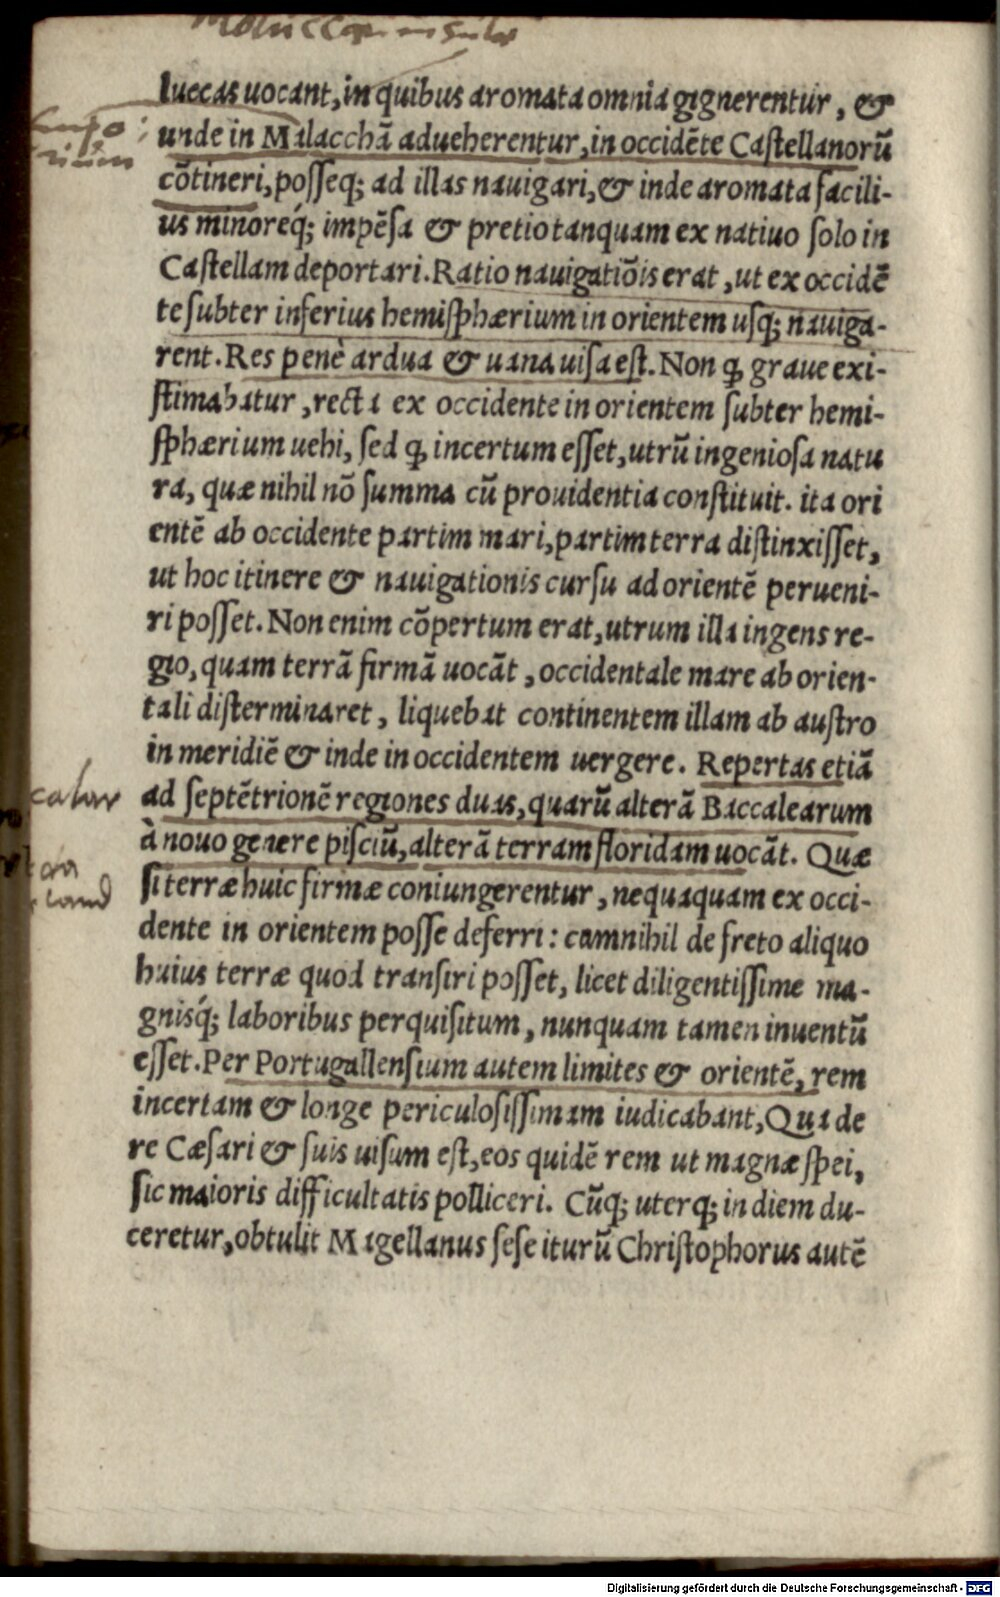 luccas uocant, in quibus aromata omnia gignerentur, &
unde in Malacchā adueherentur, in occidēte Castellanorū
cōtineri, posseq; ad illas nauigari, & inde aromata facili-
us minoreq́; impēsa & pretio tanquam ex natiuo solo in
Castellam deportari. Ratio nauigatiōis erat, ut ex occidē
te subter inferius hemisphærium in orientem usq; nauiga-
rent. Res penè ardua & uana uisa est. Non ꝙ graue exi-
stimabatur, recta ex occidente in orientem subter hemi-
sphærium uehi, sed ꝙ incertum esset, utrū ingeniosa natu
ra, quæ nihil nō summa cū prouidentia constituit. ita ori
entē ab occidente partim mari, partim terra distinxisset,
ut hoc itinere & nauigationis cursu ad orientē perueni-
ri posset. Non enim cōpertum erat, utrum illa ingens re-
gio, quam terrā firmā uocāt, occidentale mare ab orien-
tali disterminaret, liquebat continentem illam ab austro
in meridiē & inde in occidentem uergere. Repertas etiā
ad septētrionē regiones duas, quarū alterā Baccalearum
à nouo genere pisciū, alterā terram floridam uocāt. Quæ
si terræ huic firmæ coniungerentur, nequaquam ex occi-
dente in orientem posse deferri: cumnihil de freto aliquo
huius terræ quod transiri posset, licet diligentissime ma-
gnisq́; laboribus perquisitum, nunquam tamen inuentū
esset. Per Portugallensium autem limites & orientē, rem
incertam & longe periculosissimam iudicabant, Qua de
re Cæsari & suis uisum est, eos quidē rem ut magnæ spei,
sic maioris difficultatis polliceri. Cūq; uterq; in diem du-
ceretur, obtulit Magellanus sese iturū Christophorus autē
Digitalisierung gefördert durch die Deutsche Forschungsgemeinschaft - DFG